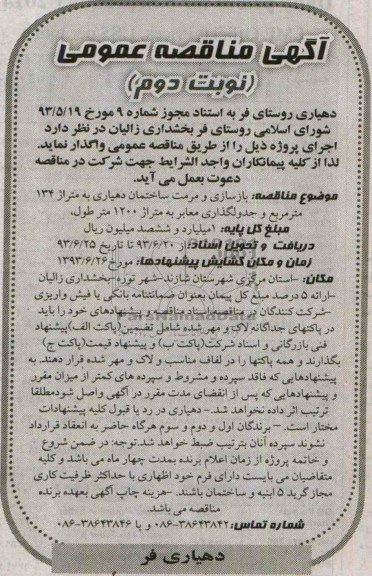 آگهی مناقصه عمومی
(نوبت دوم)
دهیاری روستای فر به استناد مجوز شماره ۹ مورخ ۹۳/۵/۱۹
شورای اسلامی روستای فر بخشداری زالیان در نظر دارد
اجرای پروژه ذیل را از طریق مناقصه عمومی واگذار نماید.
لذا از کلیه پیمانکاران واجد الشرایط جهت شرکت در مناقصه
دعوت بعمل می آید.
موضوع مناقصه: بازسازی و مرمت ساختمان دهیاری به متراژ ۱۳۴
مترمربع و جدولگذاری معابر به متراژ ۱۲۰۰ متر طول.
مبلغ کل پایه: ۱میلیارد و ششصد میلیون ریال
دریافت و تحویل اسناد: از ۹۳/۶/۲۰ تا تاریخ ۹۳/۶/۲۵
زمان و مکان گشایش پیشنهادها: مورخ ۱۳۹۳/۶/۲۶
مکان: -استان مرکزی شهرستان شازند-شهر توره-بخشداری زالیان
-ارائه ۵درصد مبلغ کل پیمان بعنوان ضمانتنامه بانکی یا فیش واریزی
-شرکت کنندگان در مناقصه اسناد مناقصه و پیشنهادهای خود را باید
در پاکتهای جداگانه لاک و مهر شده شامل تضمین(پاکت الف)پیشنهاد
فنی بازرگانی و اسناد شرکت(پاکت ب) و پیشنهاد قیمت(پاکت ج)
بگذارند و همه پاکتها را در لفاف مناسب و لاک و مهر شده قرار دهند. به
پیشنهادهایی که فاقد سپرده و مشروط و سپرده های کمتر از میزان مقرر
و پیشنهادهایی که پس از انقضای مدت مقرر در آگهی واصل شودمطلقا
ترتیب اثر داده نخواهد شد.- دهیاری در رد یا قبول کلیه پیشنهادات
مختار است. – برندگان اول و دوم و سوم هرگاه حاضر به انعقاد قرارداد
نشوند سپرده آنان بترتیب ضبط خواهد شد.توجه: در ضمن شروع
و خاتمه پروژه از زمان اعلام برنده بمدت چهار ماه می باشد و کلیه
متقاضیان می بایست دارای فرم خود اظهاری با حداکثر ظرفیت کاری
مجاز گرید ۵ ابنیه و ساختمان باشند. -هزینه چاپ آگهی بعهده برنده
مناقصه می باشد.
شماره تماس: ۳۸۶۴۳۸۴۲-۰۸۶ و یا ۳۸۶۴۳۸۴۶-۰۸۶
دهیاری فر